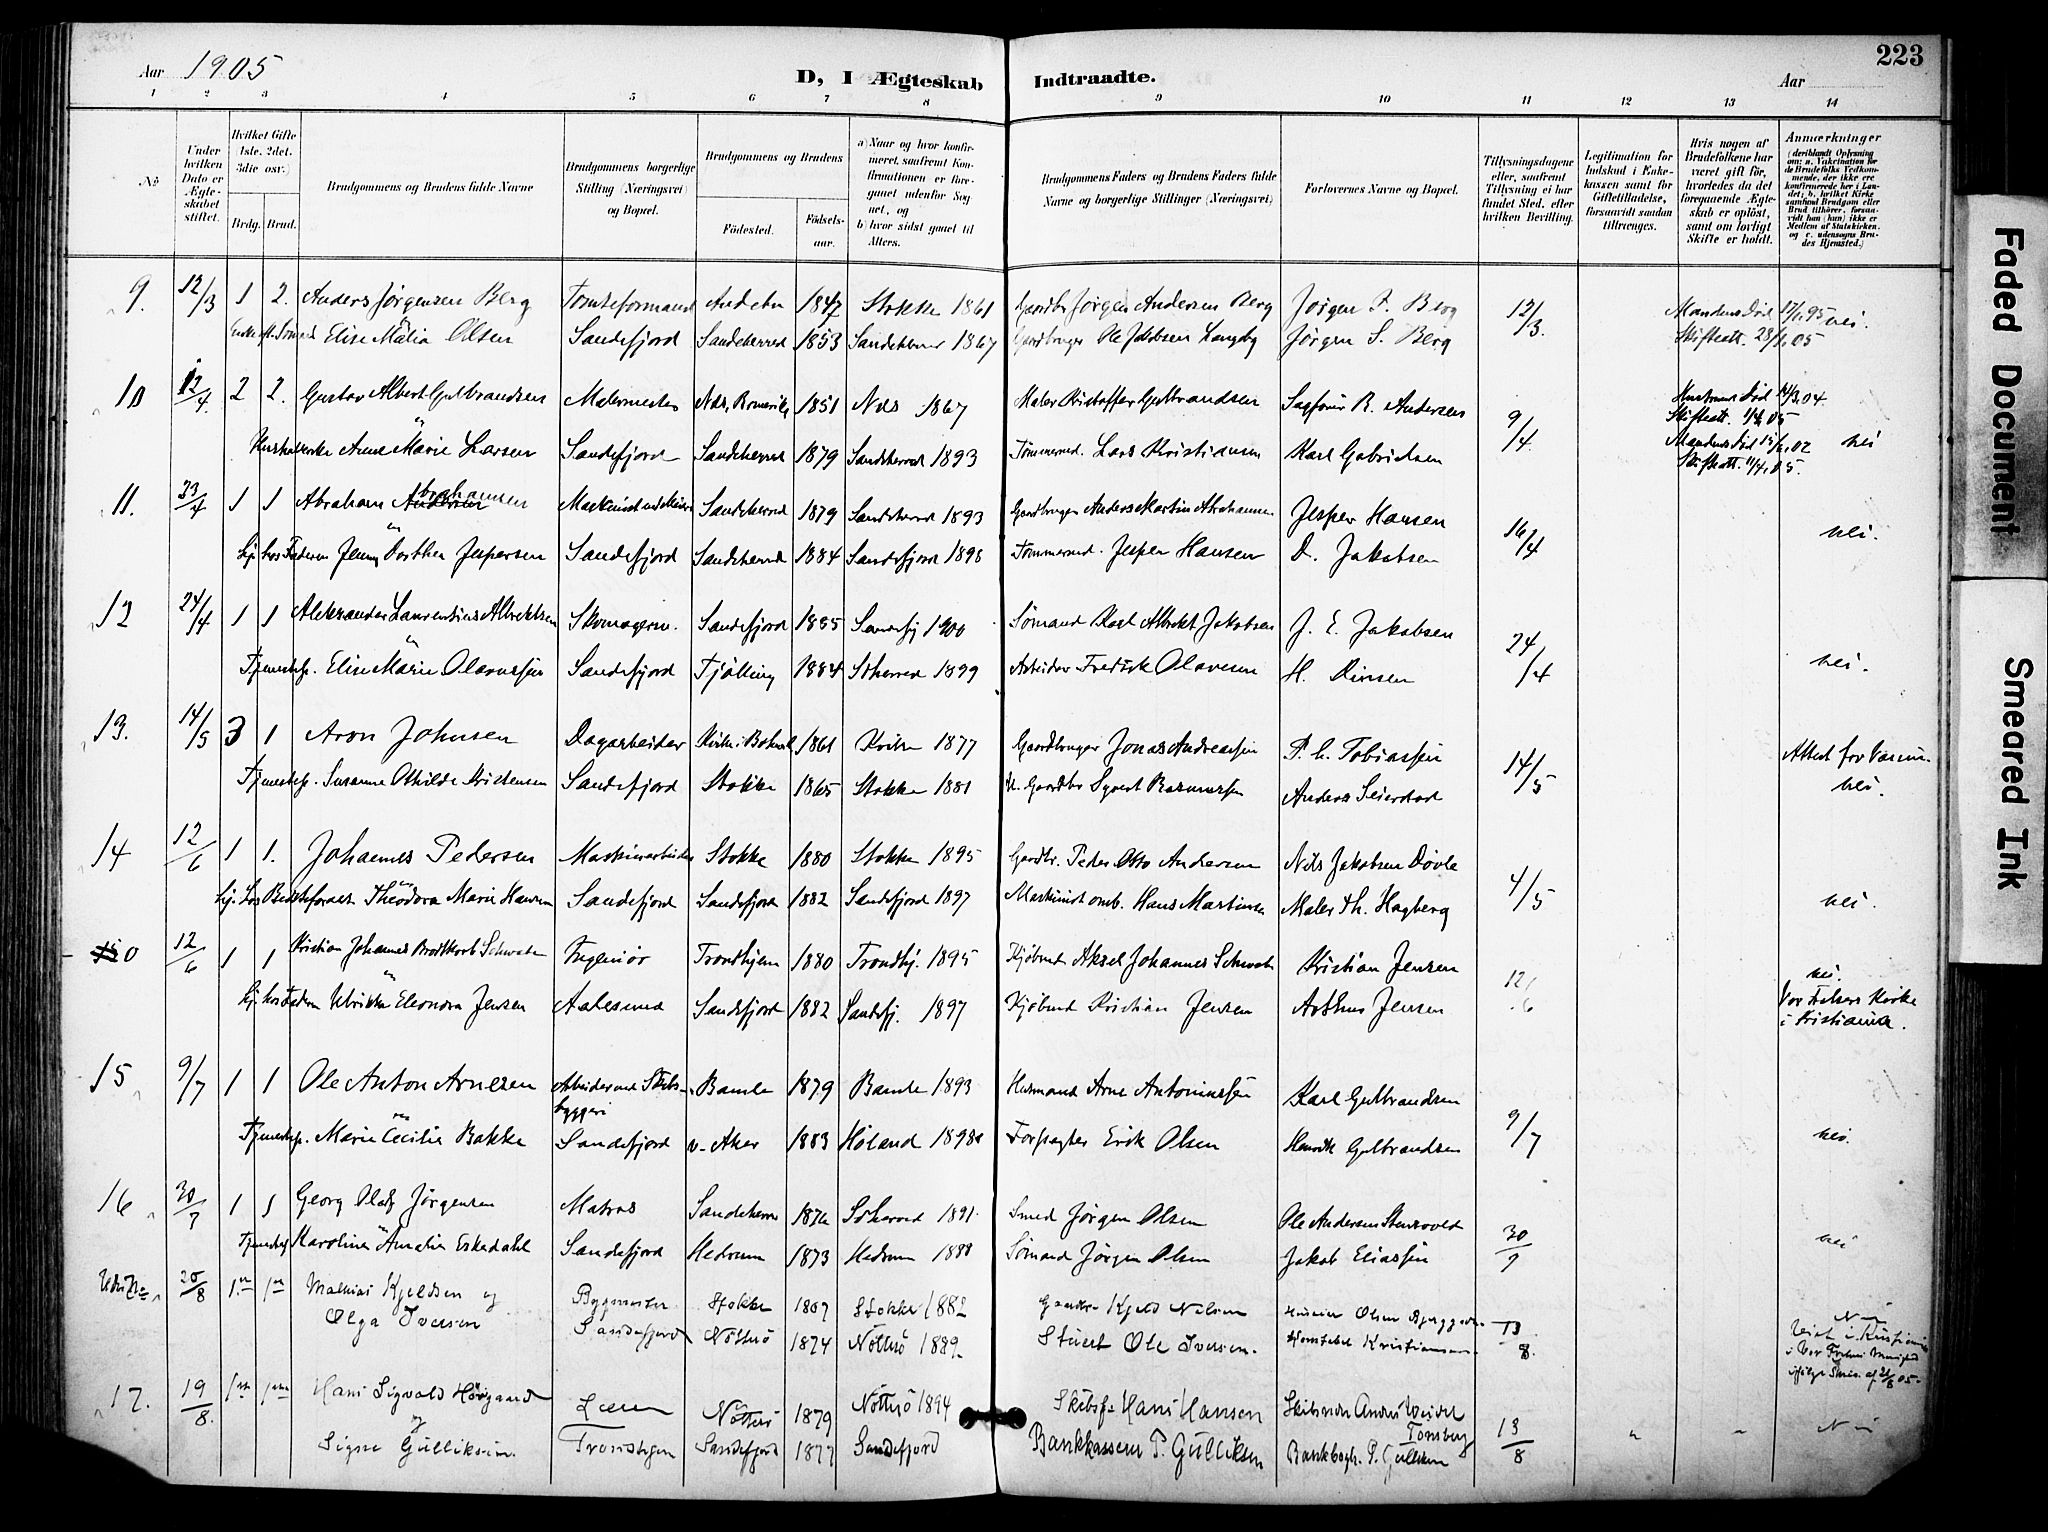 Aar 1905
D, I Ægteskab Indtraadte.
Aar
223
1 2 3 4 5 6 7 8 9 10 11 12 13 14
No
Under hvilken Dato er Ægteskabet stiftet.
Hvilket Gifte (1ste, 2det, 3die osv.)
Brdg. Brud.
Brudgommens og Brudens fulde Navne
Brudgommens borgerlige Stilling (Næringsvei) og Bopæl.
Brudgommens og Brudens
Fødested.
Fødselsaar.
a) Naar og hvor konfirmeret, saafremt Konfirmationen er foregaaet udenfor Sognet, og
b) hvor sidst gaaet til Alters.
Brudgommens Faders og Brudens Faders fulde Navne og borgerlige Stillinger (Næringsvei)
Forlovernes Navne og Bopæl.
Tillysningsdagene eller, saafremt Tillysning ei har fundet Sted, efter hvilken Bevilling.
Legitimation for Indskud i Enkekassen samt for Giftetilladelse, forsaavidt saadan tiltrænges.
Hvis nogen af Brudefolkene har været gift før, hvorledes da det foregaaende Ægteskab er opløst, samt om lovligt Skifte er holdt.
Anmærkninger (deriblandt Oplysning om: a. Vakcination for de Brudefolks Vedkommende, der ikke ere konfirmerede her i Landet; b. hvilket Kirkesamfund Brudgom eller Brud tilhører, forsaavidt han (hun) ikke er Medlem af Statskirken, og c. udensogns Brudes Hjemsted.)
9. 12/3 1 2. Anders Jørgensen Berg Tomteformand Andebu 1847 Stokke 1861 Gaardbr Jørgen Andersen Berg Jørgen F. Berg 12/3. Mandens Død 17/1 95 nei.
Elise Malia Olsen Sandefjord Sandeherred 1853 Sandeherred 1867 Gaardbruger Ole Jakobsen Langby Jørgen S. Berg Skifteatt. 28/1 05
10 12/4 2 2. Gustav Albert Gulbrandsen Malermester Næs, Romerike 1851 Næs 1867 Maler Kristoffer Gulbrandsen Sagfører R. Andersen 9/4. Hustruens Død 14/3.04. Skifteatt. 1/4 05
Anne Marie Larsen Sandefjord Sandeherred 1879 Sandeherred 1893 Tømmermd. Lars Kristiansen Karl Gabrielsen Mandens Død 15/1.02 Skifteatt. 11/4.05. nei
11. 23/4 1 1 Abraham Abrahamsen Maskinist Sandeherred 1879 Sandeherred 1893 Gaardbruger Anders Martin Abrahamsen Jesper Hansen 16/4 nei.
hj. hos Faderen Jenny Dorthea Jespersen Sandefjord Sandeherred 1884 Sandefjord 1898 Tømmermd. Jesper Hansen D. Jakobsen
12 24/4 1 1 Aleksander Laurentius Albrektsen Skomagersv. Sandefjord 1885 Sandefj 1900 Sømand Karl Albrekt Jakobsen J. E. Jakobsen 24/4 nei.
Tjenestep. Elise Marie Olavessen Sandefjord Tjølling 1884 Sherred 1899 Arbeider Fredrik Olavesen H. Dinsen
13. 14/5 3 1 Aron Johnsen Dagarbeider 1861 Kville 1877 Gaardbruger Jonas Andreassen P. C. Tobiassen 14/5 Attest for Vaccin.
Tjenestep. Susanne Othilde Kristensen Sandefjord Stokke 1865 Stokke 1881 Gaardbr Syvert Rasmussen Anders Seierstad nei.
14 12/6 1 1. Johannes Pedersen Maskinarbeider Stokke 1880 Stokke 1895 Gaardbr. Peder Otto Andersen Nils Jakobsen Døvle 4/5 nei.
hj. hos Theodora Marie Hansen Sandefjord Sandefjord 1882 Sandefjord 1897 Maskinist omb. Hans Martinsen Maler Th. Hagberg
0 12/6 1 1 Kristian Johannes Brodtkorb Schwabe Ingeniør Trondhjem 1880 Trondhj. 1895 Kjøbmd Aksel Johannes Schwabe Kristian Jensen 12/6 nei.
hj. hos Faderen Ulrikke Eleonora Jensen Aalesund Sandefjord 1882 Sandefj. 1897 Kjøbmd Kristian Jensen Arthur Jensen Vor Frelsers Kirke i Kristiania.
15 9/7 1 1 Ole Anton Arnesen Arbeider ved Skibsbyggeri Bamle 1879 Bamle 1893 Husmand Arne Antoniussen Karl Gulbrandsen 9/7
Tjenestep. Marie Cecilie Bakke Sandefjord v. Aker 1883 Høland 1898 Forpagter Erik Olsen Henrik Gulbrandsen nei.
16 30/7 1 1 Georg Olaf Jørgensen Matros Sandeherred 1876 Sherred 1891 Smed Jørgen Olsen Ole Andersen 30/7 nei
Tjenestep. Karoline Amalie Eskedahl Sandefjord Hedrum 1873 Hedrum 1888 Sømand Jørgen Olsen Jakob Eliassen
20/8 1ste 1ste Mathias Kjeldsen og Bygmester Stokke 1867 Stokke 1882 Gaardbr Kjeld Nilsen 13/8. Nei
Olga Iversen Sandefjord Nøtterø 1874 Nøtterø 1889 Stuert Ole Iversen. Konstabel Kristiansen Viet i Kristiania i Vor Frelsers Menighed
17. 19/8. Hans Sigvald Hövgaard og Nøtterø 1879 Nøtterø 1894 Skibsf. Hans Hansen Tønsberg 13/8 " " Nei
Signe Gulliksen. Sandefjord 1877 Sandefjord Bankkasserer P. Gulliksen Bankbogh. P. Gulliksen
Faded Document
Smeared Ink